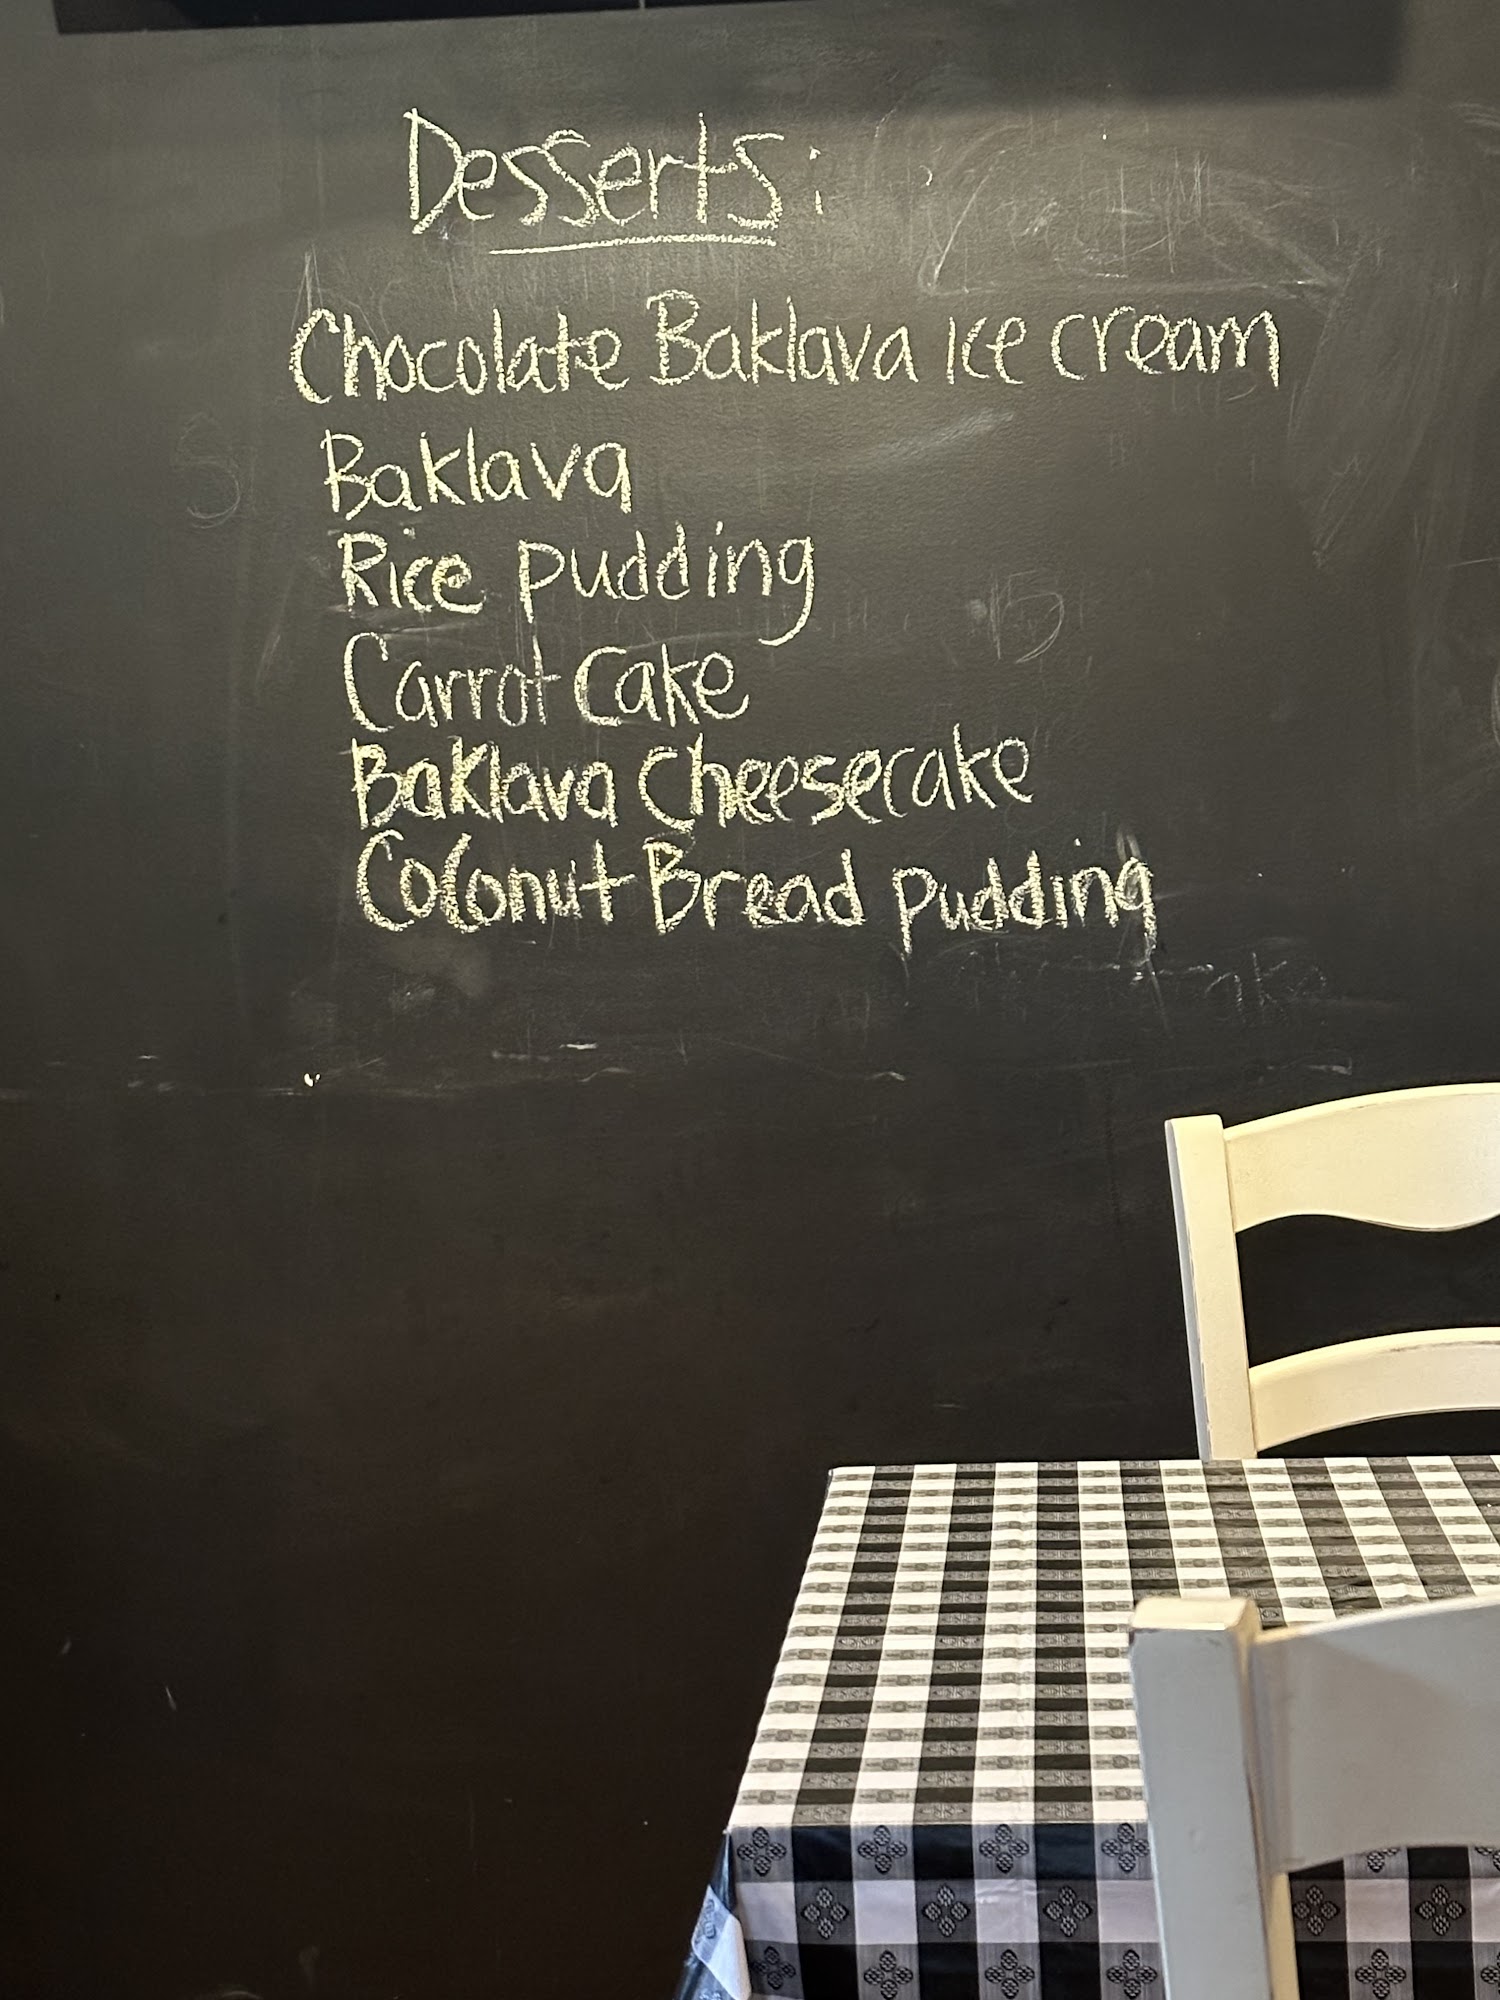 Desserts:
Chocolate Baklava Ice cream
Baklava
Rice pudding
Carrot Cake
Baklava Cheesecake
Coconut Bread pudding